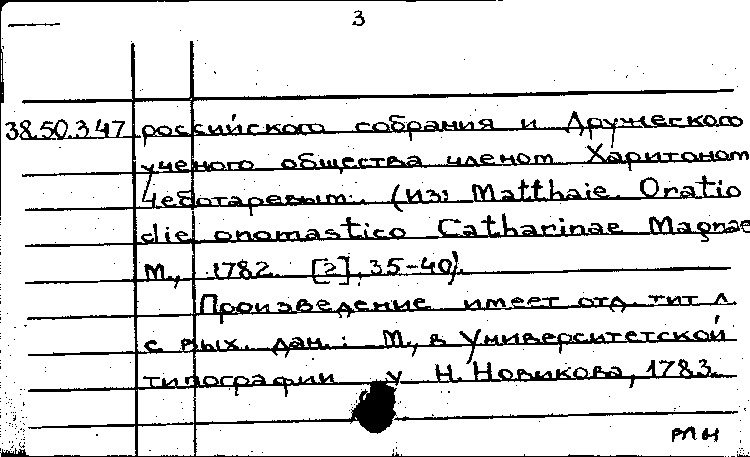 3
38.50.347 российского собрания и Дружеского
ученого общества членом Харитоном
Чеботаревым. (Из: Matthaie. Oratio
die onomastico Catharinae Magnae
М., 1782. [2], 35-40).
Произведение имеет отд. тит. л.
с вых. дан.: М., в Университетской
типографии у Н. Новикова, 1783.